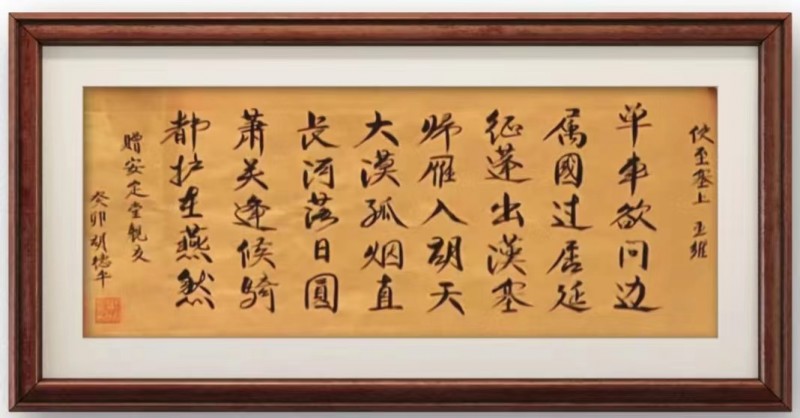 使至塞上 王維
单車欲问边
属國过居延
征蓬出漢塞
归雁入胡天
大漠孤烟直
长河落日圆
萧关逢候騎
都护在燕然
贈安定堂親友
癸卯胡德平